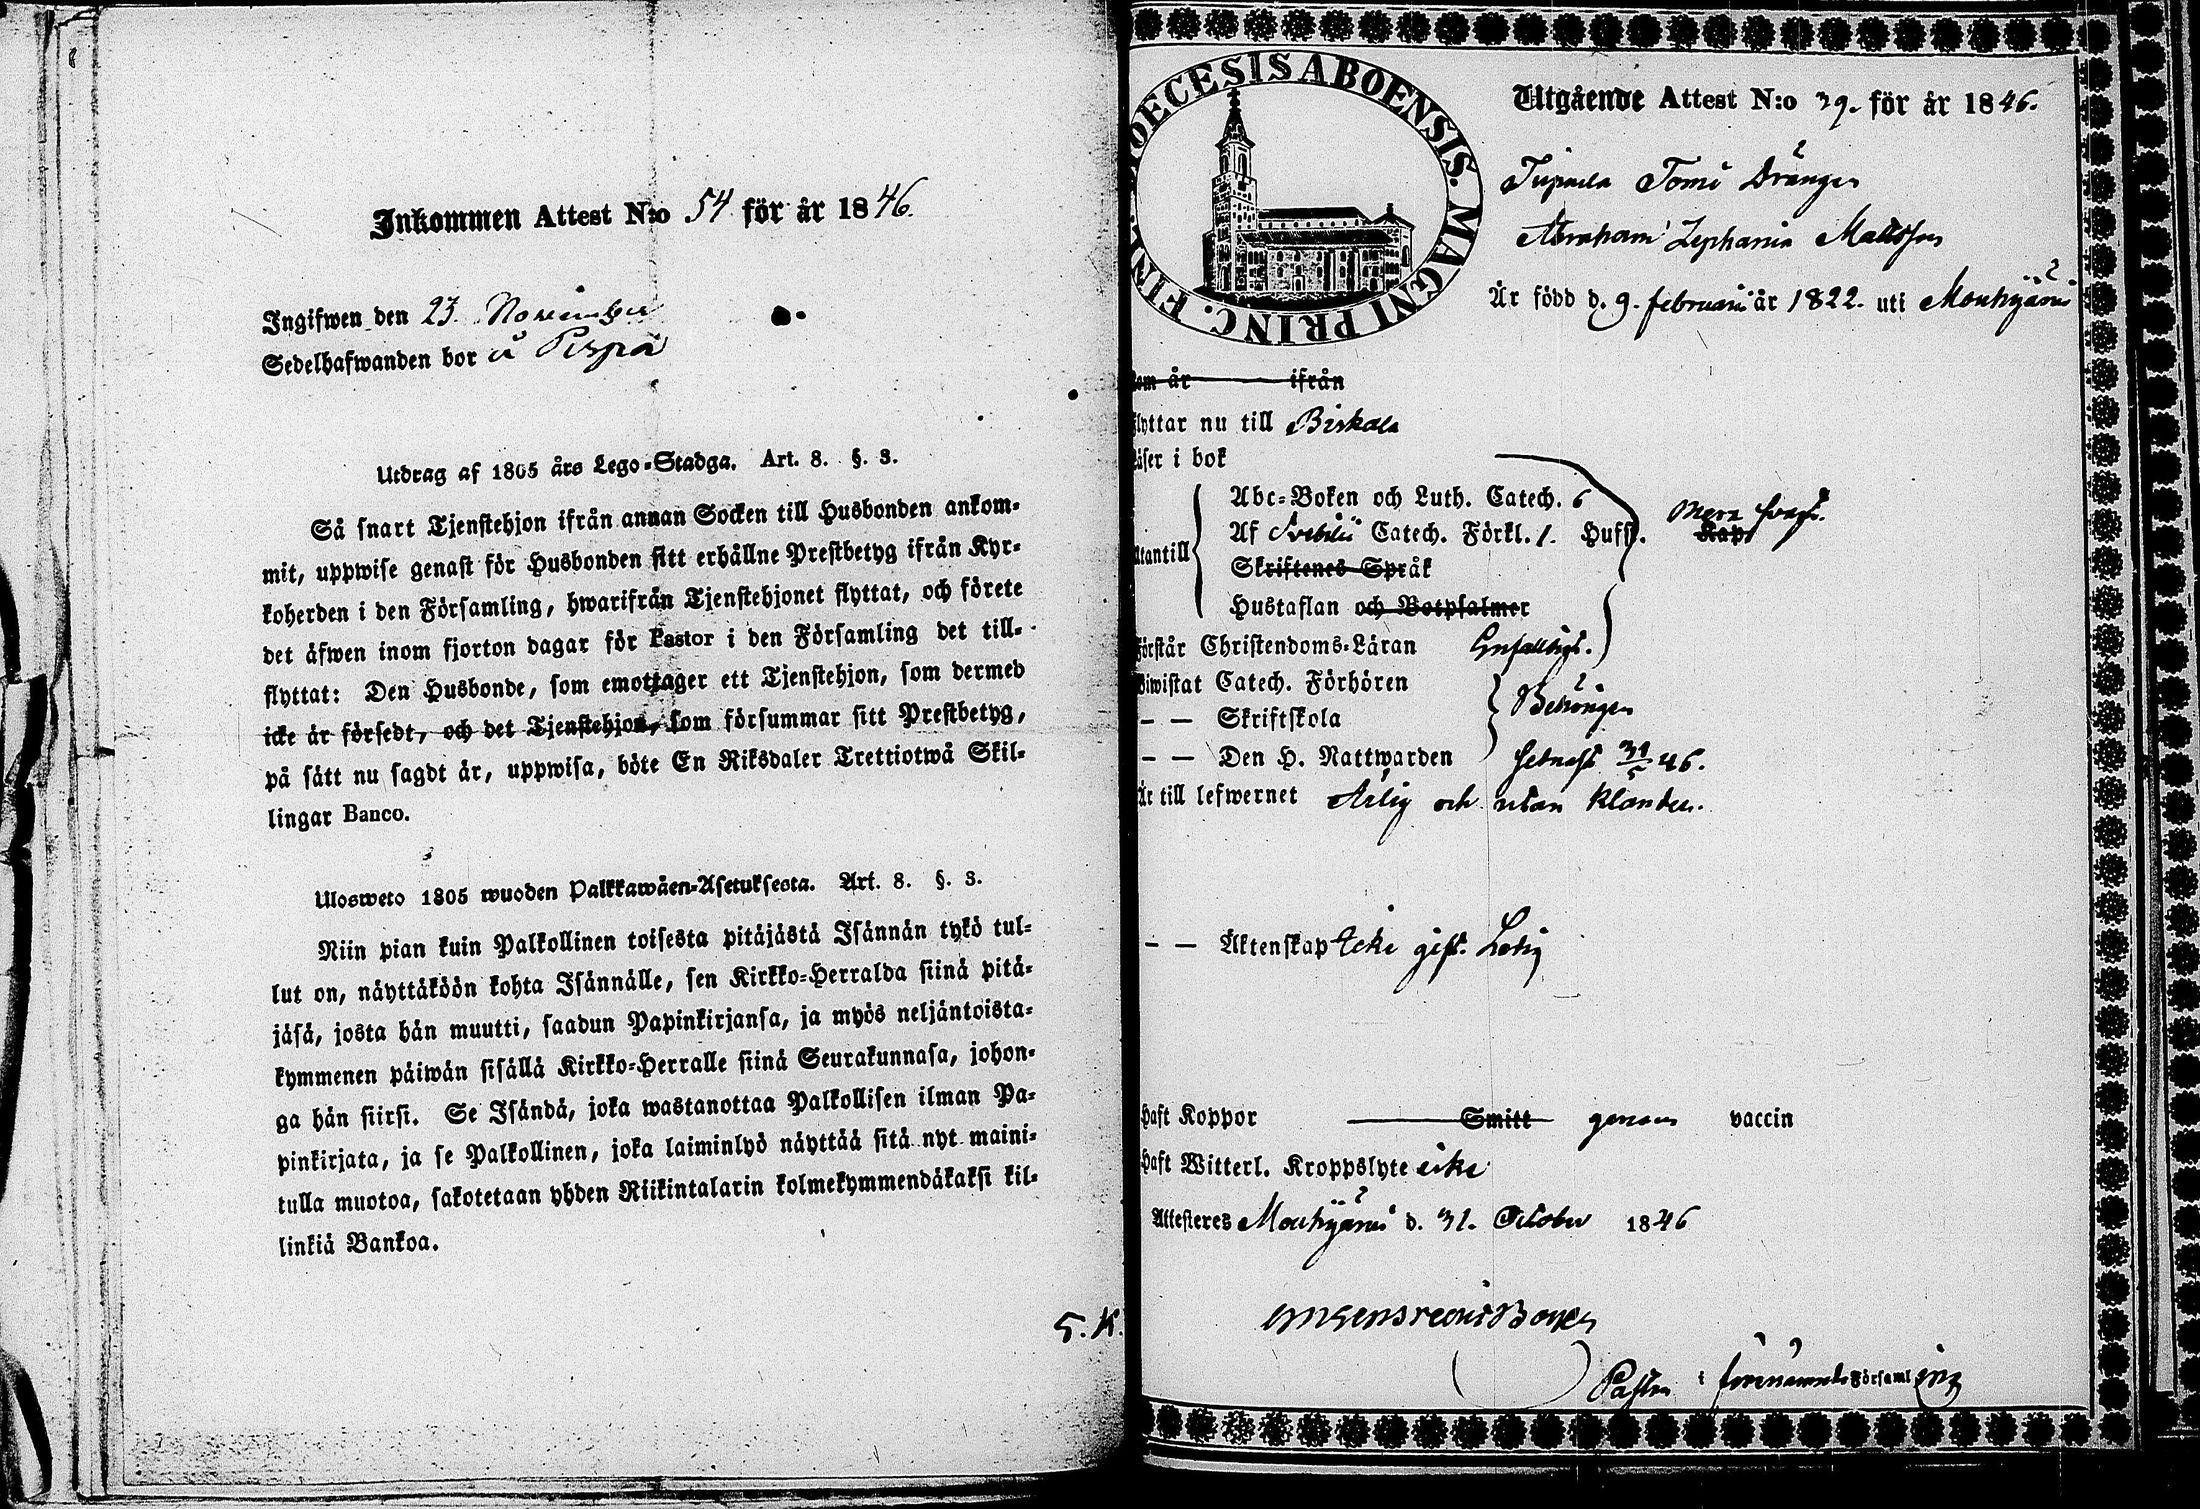 Inkommen Attest N:o 54 för år 1846.
Ingifwen den 23 November
Sedelhafwanden bor å Pispa
Utdrag af 1805 års Lego-Stadga. Art. 8. §. 3.
Så snart Tjenstehjon ifrån annan Socken till Husbonden ankom-
mit, uppwise genast för Husbonden sitt erhållne Prestbetyg ifrån Kyr-
koherden i den Församling, hwarifrån Tjenstehjonet flyttat, och förete
det äfwen inom fjorton dagar för Pastor i den Församling det till-
flyttat: Den Husbonde, som emottager ett Tjenstehjon, som dermed
icke är försedt, och det Tjenstehjon, som försummar sitt Prestbetyg,
på sätt nu sagdt är, uppwisa, böte En Riksdaler Trettiotwå Skil-
lingar Banco.
Ulosweto 1805 wuoden Palkkawäen-Asetuksesta. Art. 8. §. 3.
Niin pian kuin Palkollinen toisesta pitäjästä Isännän tykö tul-
lut on, näyttäköön kohta Isännälle, sen Kirkko-Herralda siinä pitä-
jäsä, josta hän muutti, saadun Papinkirjansa, ja myös neljäntoista-
kymmenen päiwän sisällä Kirkko-Herralle siinä Seurakunnasa, johon-
ga hän siirsi. Se Isändä, joka wastanottaa Palkollisen ilman Pa-
pinkirjata, ja se Palkollinen, joka laiminlyö näyttää sitä nyt maini-
tulla muotoa, sakotetaan yhden Riikintalarin kolmekymmendäkaksi kil-
linkiä Bankoa.
S. K.
DIOECESIS ABOENSIS. MAGNI PRINC. FINL.
Utgående Attest N:o 39. för år 1846.
Tupuela Tomi Drängen
Abraham Zephania Mattsson
Är född d. 9. februarii år 1822. uti Mouhijärvi
kom år ifrån
flyttar nu till Birkala
Läser i bok
Abc-Boken och Luth. Catech. 6
Af Svebilii Catech. Förkl. 1. Hufst. Kap
mera svagt.
Utantill
Skriftenes Språk
Hustaflan och Botpsalmer
Förstår Christendoms-Läran Enfalldigt.
Biwistat Catech. Förhören
Behörigen
— — Skriftskola
— — Den H. Nattwarden senast 31/5 46.
Är till lefwernet Ärlig och utan klander.
— — Äktenskap Icke gift. Ledig
Haft Koppor Smitt genom vaccin
Haft Witterl. Kroppslyte icke
Attesteres Mouhijärvi d. 31. October 1846
Pastor i förenämnde Församling